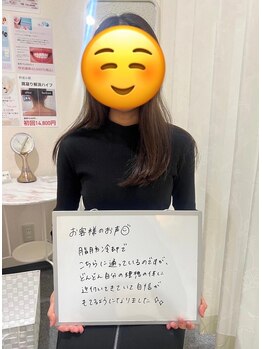 お客様のお声
脂肪冷却で
こちらに通っているのですが、
どんどん自分の理想の体に
近付いてきていて自信が
もてるようになりました
初回14,800円